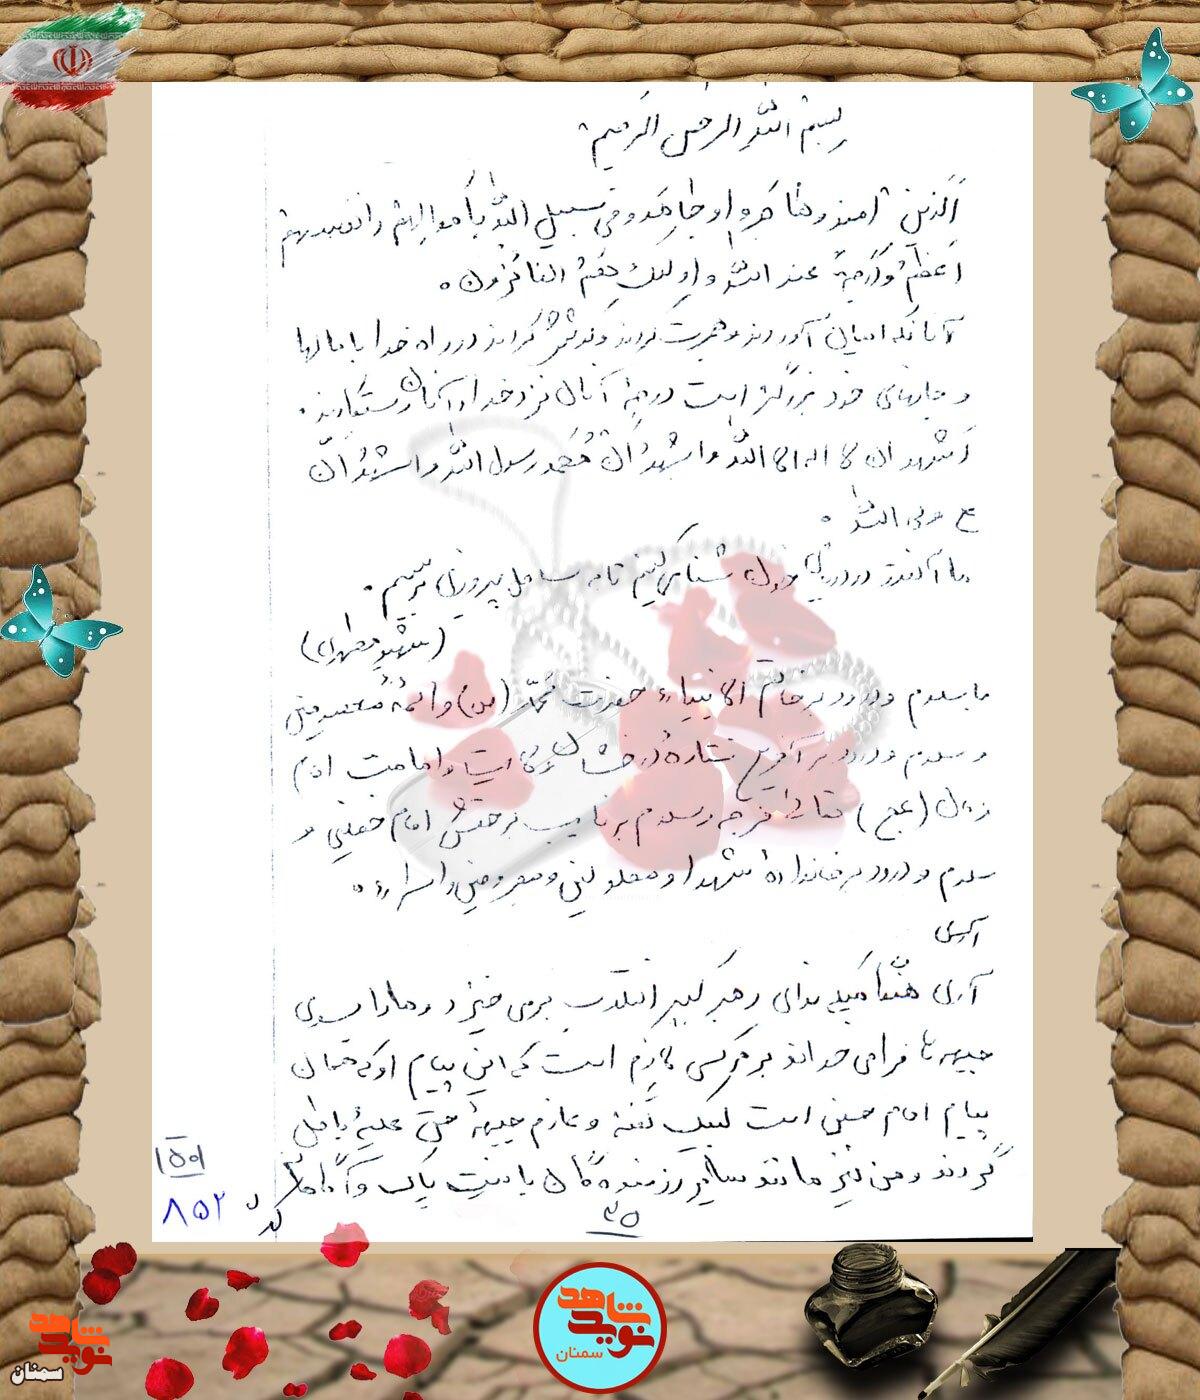 بسم الله الرحمن الرحیم
الذین آمنو و هاجروا و جاهدو فی سبیل الله باموالهم و انفسهم
اعظم درجة عند الله و اولئک هم الفائزون.
آنانکه ایمان آوردند و هجرت کردند و کوشش کردند در راه خدا با مالها
و جانهای خود بزرگتر است درجهٔ آنان نزد خدا و آنان رستگارند.
اشهد ان لا اله الا الله و اشهد ان محمد رسول الله و اشهد ان
ع ولی الله.
ما آنقدر در دریای خون شنا می‌کنیم تا به ساحل پیروزی برسیم.
(شهید مطهری)
با سلام و درود بر خاتم الانبیاء حضرت محمد (ص) و ائمهٔ معصومین
و سلام و درود بر آخرین ستارهٔ درخشان ولایت و امامت امام
زمان (عج) و سلام بر نایب بر حقش امام خمینی و
سلام و درود بر خانوادهٔ شهدا و معلولین و مجروحین و اسراء.
آری
آری هنگامیکه ندای رهبر کبیر انقلاب برمی خیزد و ما را بسوی
جبهه ها فرامی خواند بر هر کسی لازم است که این پیام او که همان
پیام امام حسین است لبیک گفته و عازم جبههٔ حق علیهٔ باطل
گردند و من نیز مانند سایر رزمندهگان با نیت پاک و آگاهانه
۳۵
۱۵۰۱
کد ۸۵۲
شاهد
نوید
سمنان
شاهد
نوید
سمنان